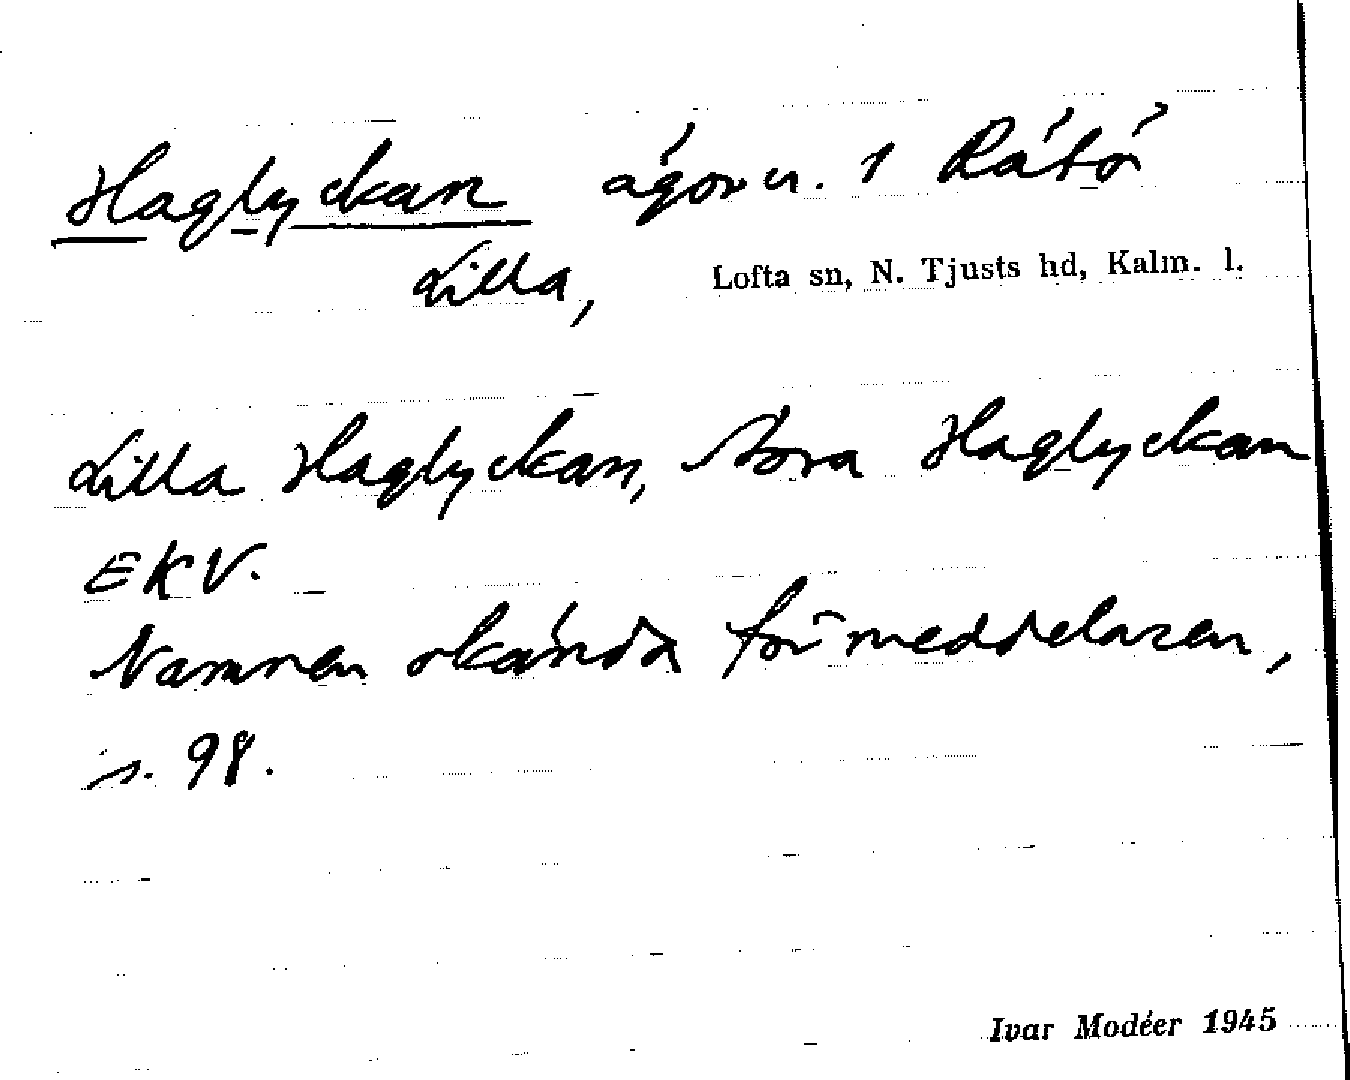 Haglyckan ägor u. 1 Råtö
Lilla, Lofta sn, N. Tjusts hd, Kalm. l.
Lilla Haglyckan, Stora Haglyckan
EKV.
Namnen okända för meddelaren,
s. 98.
Ivar Modéer 1945